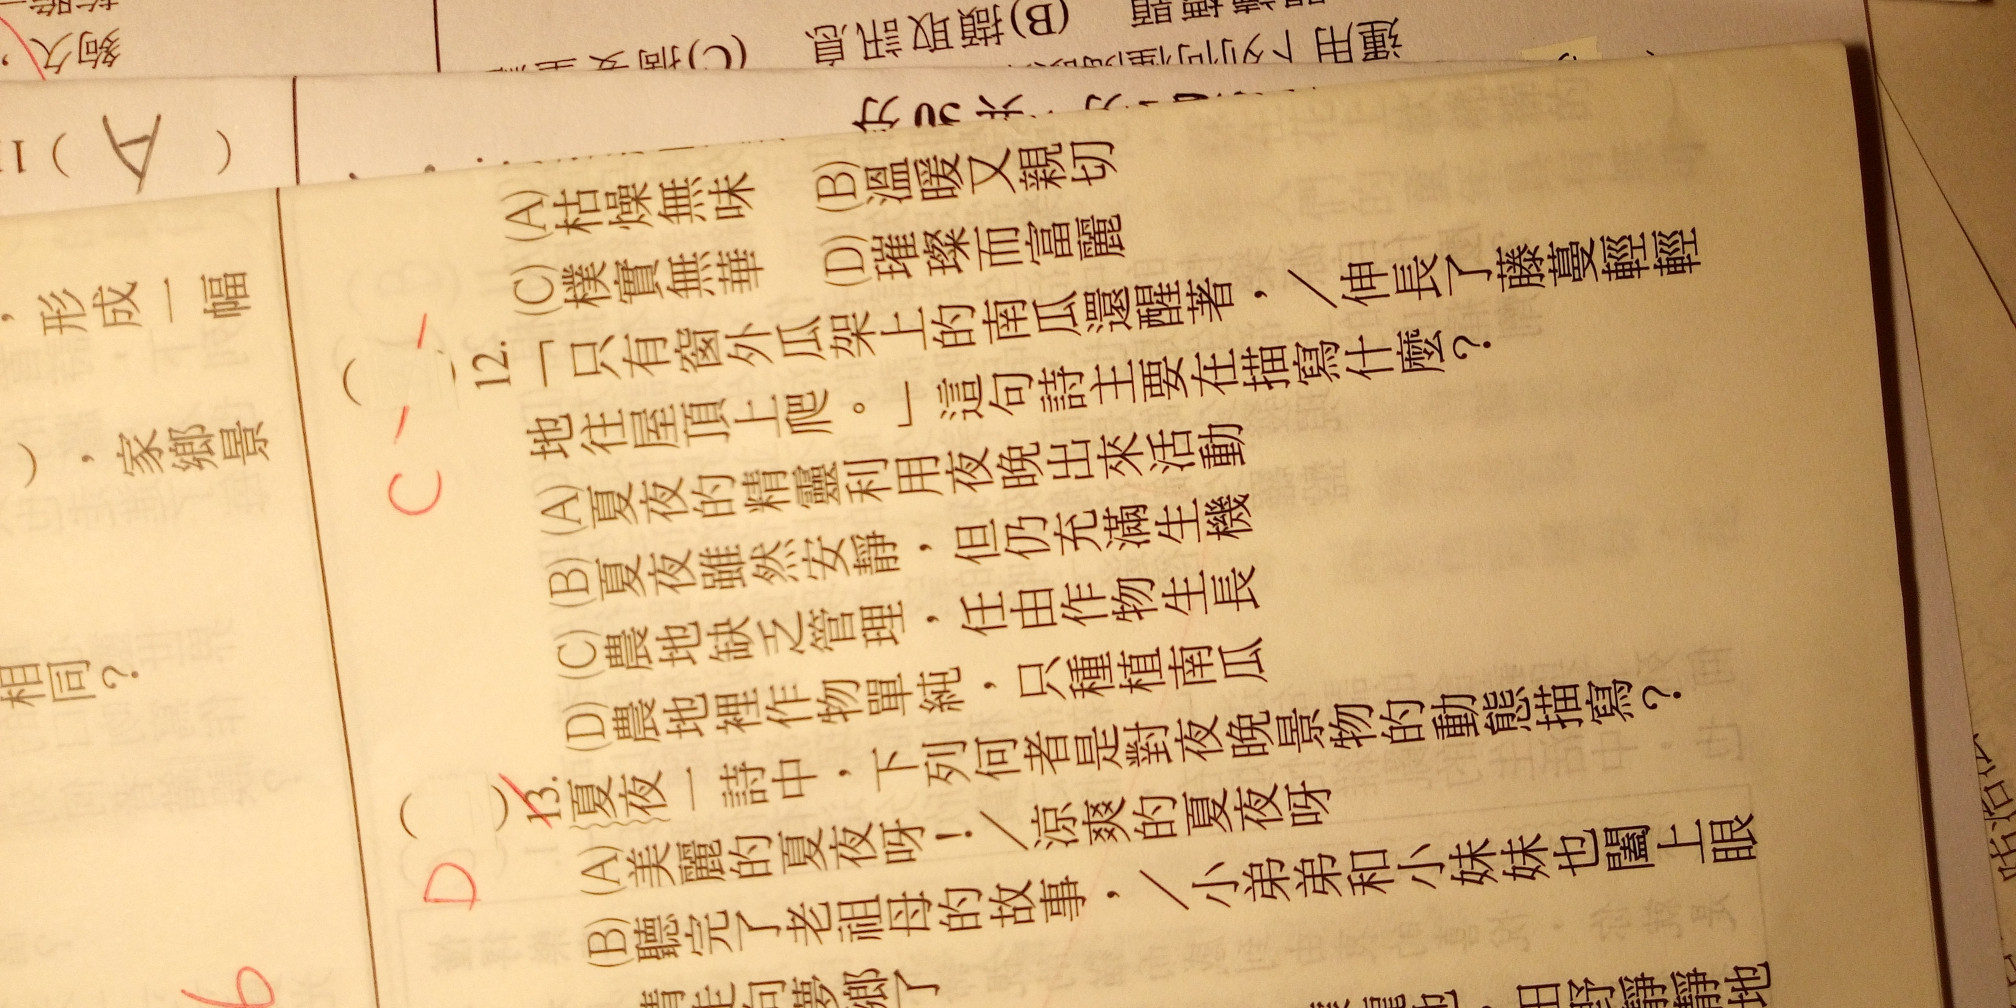 (A)枯燥無味 (B)溫暖又親切
(C)樸實無華 (D)璀璨而富麗
( )12.「只有窗外瓜架上的南瓜還醒著,/伸長了藤蔓輕輕
地往屋頂上爬。」這句詩主要在描寫什麼?
(A)夏夜的精靈利用夜晚出來活動
(B)夏夜雖然安靜,但仍充滿生機
(C)農地缺乏管理,任由作物生長
(D)農地裡作物單純,只種植南瓜
( )13.夏夜一詩中,下列何者是對夜晚景物的動態描寫?
(A)美麗的夏夜呀!/涼爽的夏夜呀
(B)聽完了老祖母的故事,/小弟弟和小妹妹也闔上眼
向夢鄉了
田野靜靜地
C
D
,形成一幅
),家鄉景
相同?
6
運用下列何種
(B)擷取訊息
(C)摘要
共50分